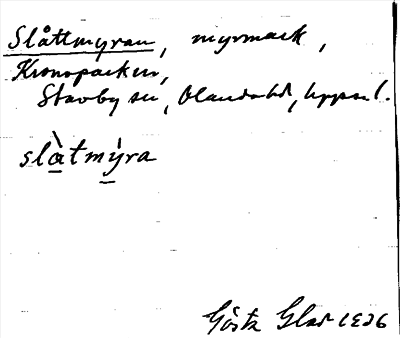 Slåttmyran, myrmark,
Kronoparken,
Stavby sn, Olands hd, Uppsal.
slàtmỳra
Gösta Glas 1926